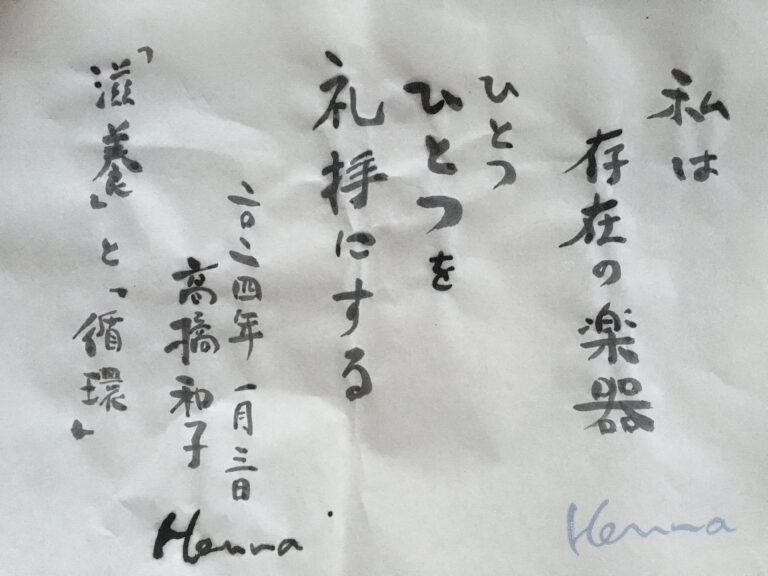 私は
存在の楽器
ひとつ
ひとつを
礼拝にする
二〇二四年 一月三日
高橋和子
Henna
「滋養」と「循環」
Henna